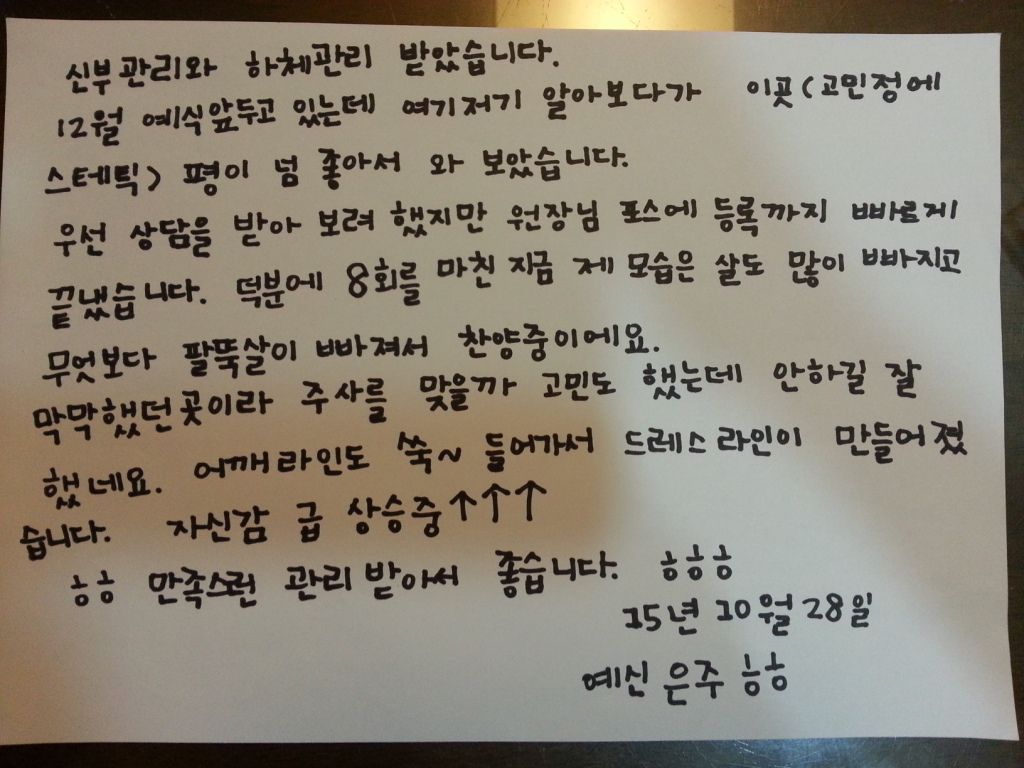 신부관리와 하체관리 받았습니다.
12월 예식앞두고 있는데 여기저기 알아보다가 이곳(고민정에
스테틱) 평이 넘 좋아서 와 보았습니다.
우선 상담을 받아 보려 했지만 원장님 포스에 등록까지 빠르게
끝냈습니다. 덕분에 8회를 마친 지금 제 모습은 살도 많이 빠지고
무엇보다 팔뚝살이 빠져서 찬양중이에요.
막막했던곳이라 주사를 맞을까 고민도 했는데 안하길 잘
했네요. 어깨라인도 쏙~ 들어가서 드레스라인이 만들어졌
습니다. 자신감 급 상승중↑↑↑
ㅎㅎ 만족스런 관리받아서 좋습니다. ㅎㅎㅎ
15년 10월 28일
예신 은주 ㅎㅎ